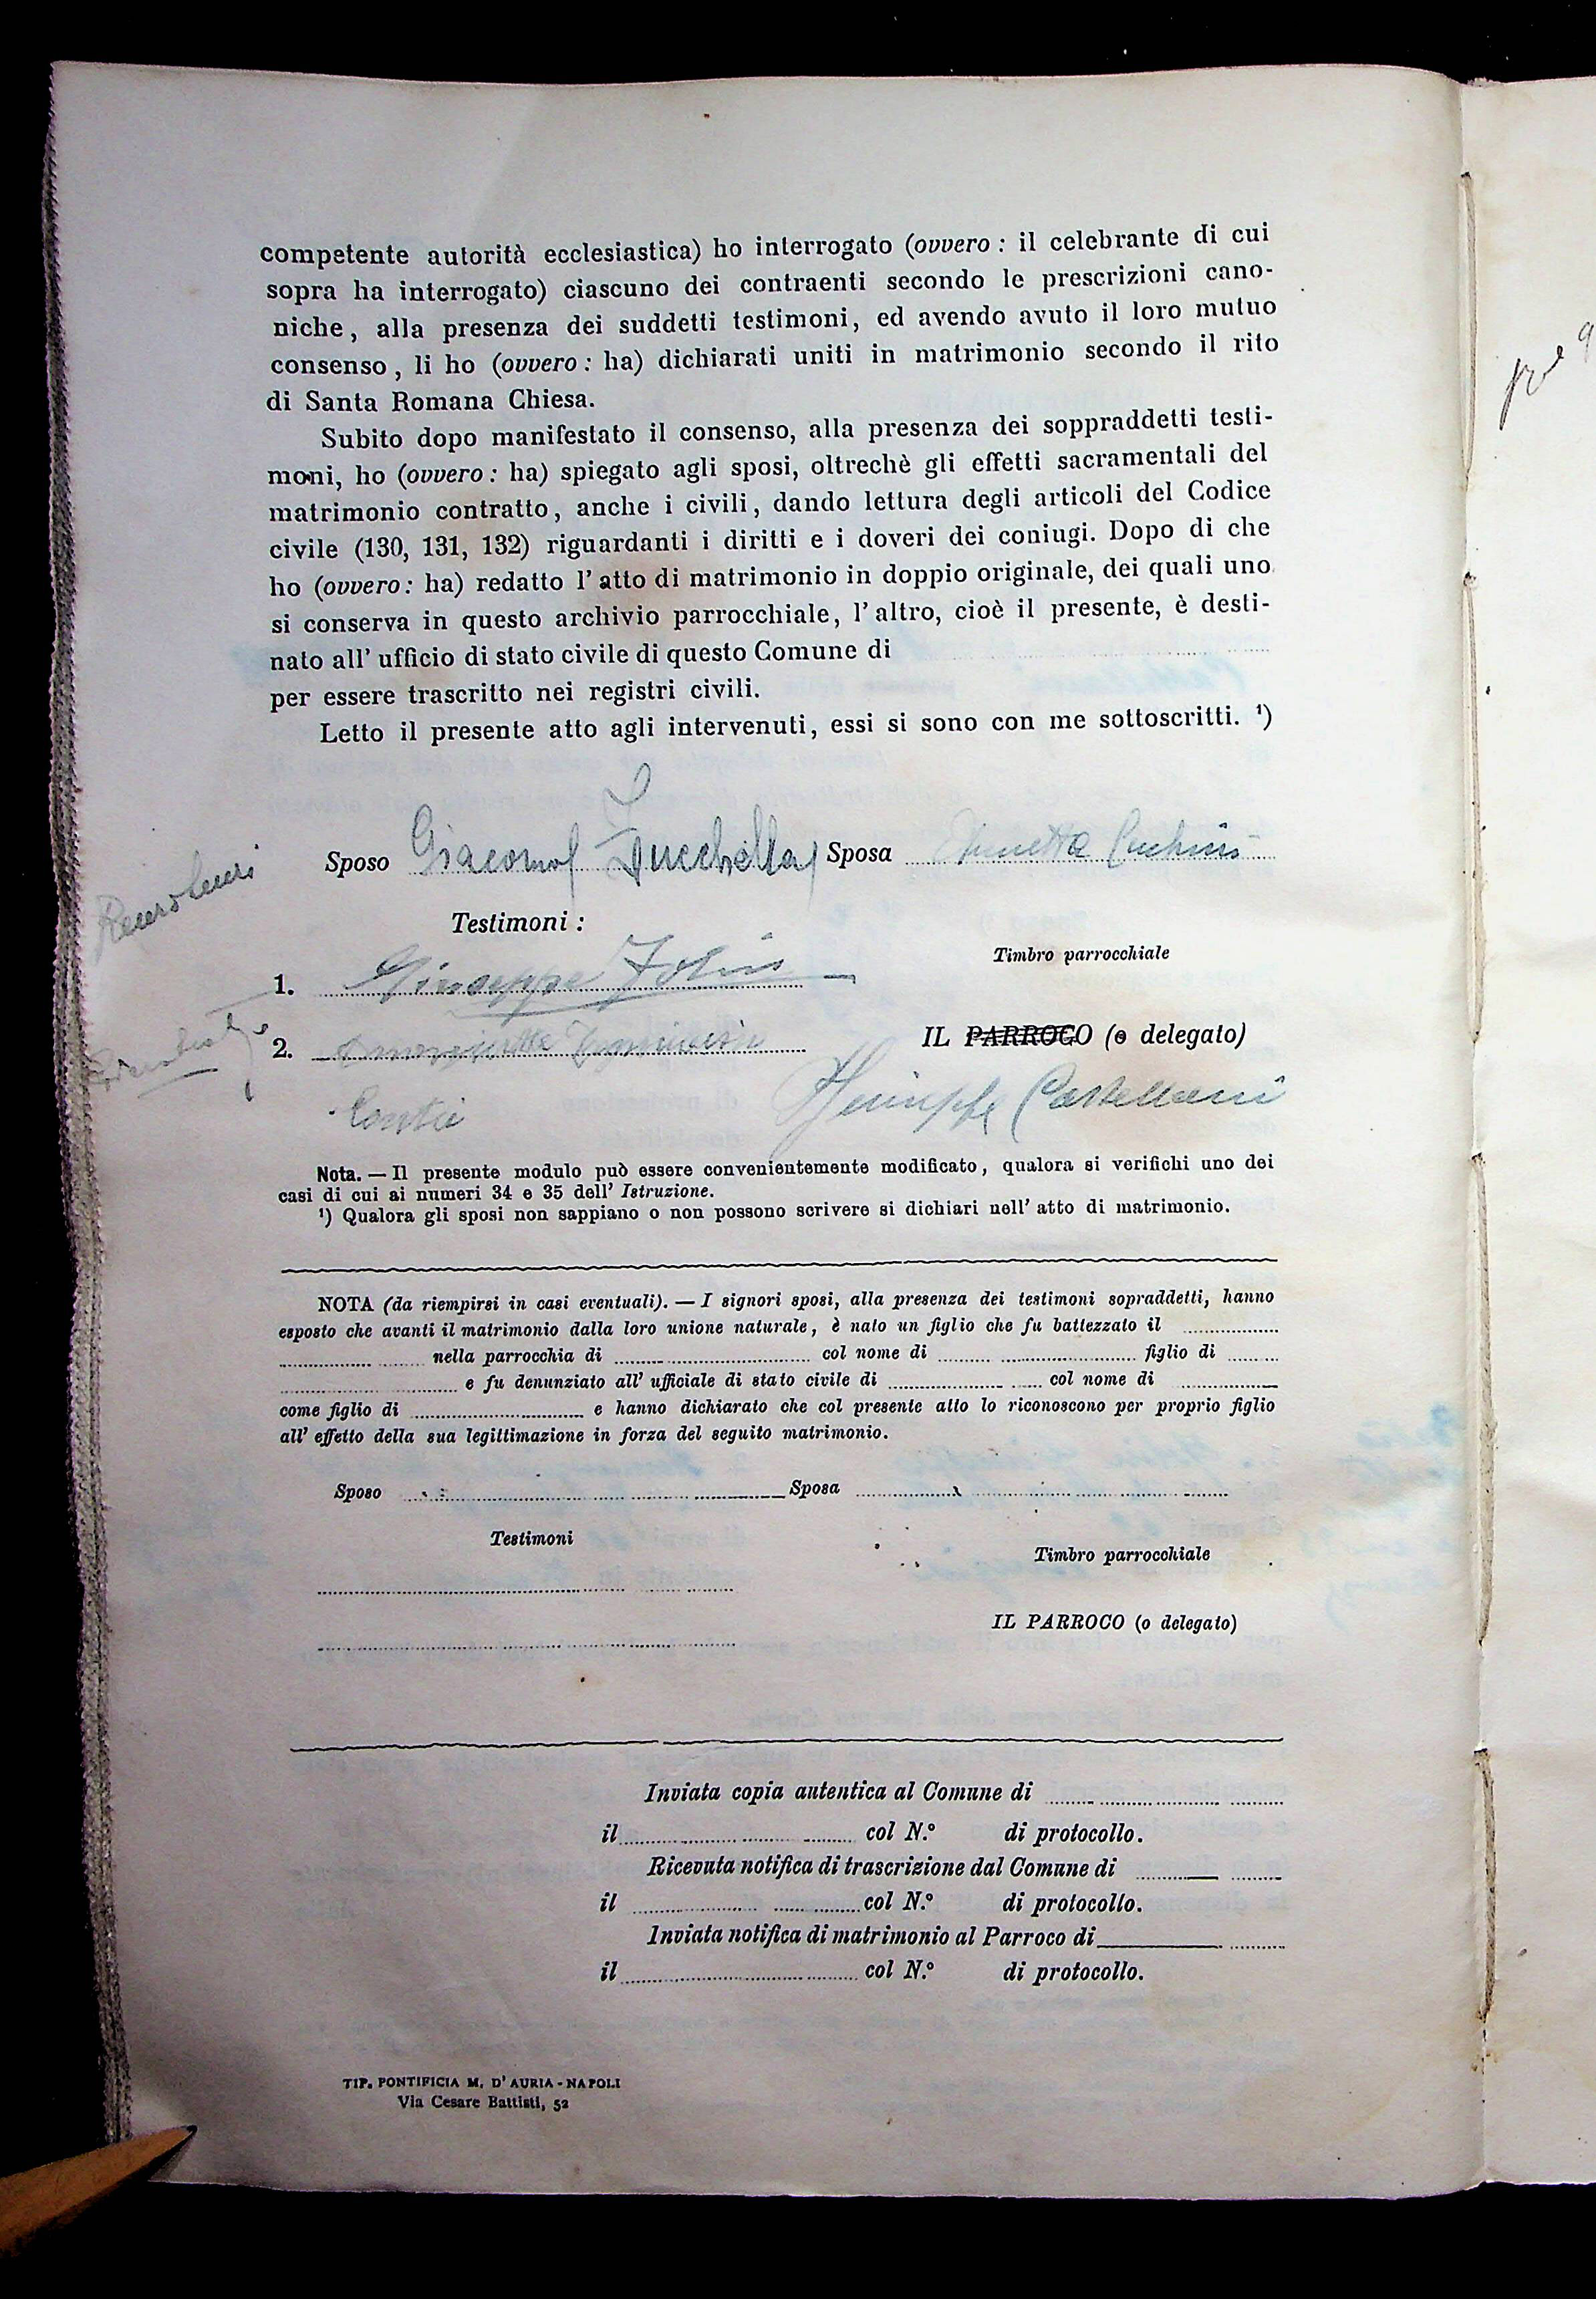 competente autorità ecclesiastica) ho interrogato (ovvero : il celebrante di cui
sopra ha interrogato) ciascuno dei contraenti secondo le prescrizioni cano-
niche, alla presenza dei suddetti testimoni, ed avendo avuto il loro mutuo
consenso, li ho (ovvero : ha) dichiarati uniti in matrimonio secondo il rito
di Santa Romana Chiesa.
Subito dopo manifestato il consenso, alla presenza dei soppraddetti testi-
moni, ho (ovvero : ha) spiegato agli sposi, oltrechè gli effetti sacramentali del
matrimonio contratto, anche i civili, dando lettura degli articoli del Codice
civile (130, 131, 132) riguardanti i diritti e i doveri dei coniugi. Dopo di che
ho (ovvero : ha) redatto l' atto di matrimonio in doppio originale, dei quali uno
si conserva in questo archivio parrocchiale, l' altro, cioè il presente, è desti-
nato all' ufficio di stato civile di questo Comune di
per essere trascritto nei registri civili.
Letto il presente atto agli intervenuti, essi si sono con me sottoscritti. ¹)
Sposo Giacomo Zucchella Sposa
Testimoni :
Timbro parrocchiale
1. Giuseppe
2.
IL PARROCO (o delegato)
Giuseppe Castellani
Nota. — Il presente modulo può essere convenientemente modificato, qualora si verifichi uno dei
casi di cui ai numeri 34 e 35 dell' Istruzione.
¹) Qualora gli sposi non sappiano o non possono scrivere si dichiari nell' atto di matrimonio.
NOTA (da riempirsi in casi eventuali). — I signori sposi, alla presenza dei testimoni sopraddetti, hanno
esposto che avanti il matrimonio dalla loro unione naturale, è nato un figlio che fu battezzato il
nella parrocchia di col nome di figlio di
e fu denunziato all' ufficiale di stato civile di col nome di
come figlio di e hanno dichiarato che col presente atto lo riconoscono per proprio figlio
all' effetto della sua legittimazione in forza del seguito matrimonio.
Sposo Sposa
Testimoni
Timbro parrocchiale
IL PARROCO (o delegato)
Inviata copia autentica al Comune di
il col N.° di protocollo.
Ricevuta notifica di trascrizione dal Comune di
il col N.° di protocollo.
Inviata notifica di matrimonio al Parroco di
il col N.° di protocollo.
TIP. PONTIFICIA M. D' AURIA - NAPOLI
Via Cesare Battisti, 52